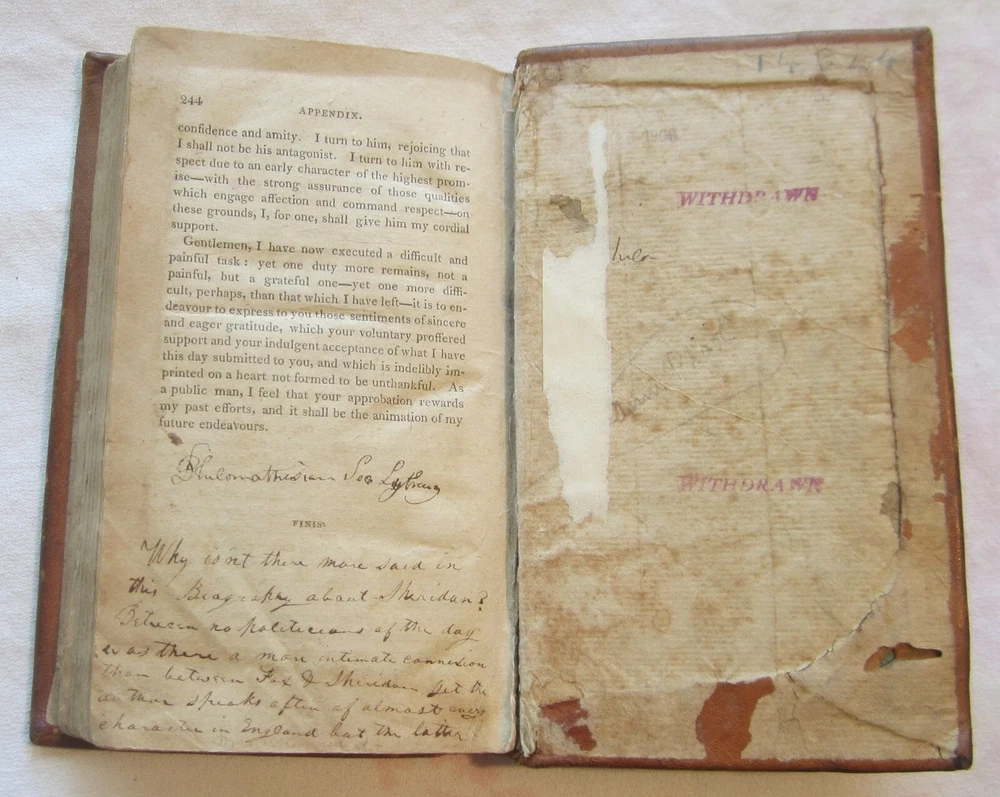 244
APPENDIX.
confidence and amity. I turn to him, rejoicing that
I shall not be his antagonist. I turn to him with re-
spect due to an early character of the highest prom-
ise—with the strong assurance of those qualities
which engage affection and command respect—on
these grounds, I, for one, shall give him my cordial
support.
Gentlemen, I have now executed a difficult and
painful task: yet one duty more remains, not a
painful, but a grateful one—yet one more diffi-
cult, perhaps, than that which I have left—it is to en-
deavour to express to you those sentiments of sincere
and eager gratitude, which your voluntary proffered
support and your indulgent acceptance of what I have
this day submitted to you, and which is indelibly im-
printed on a heart not formed to be unthankful. As
a public man, I feel that your approbation rewards
my past efforts, and it shall be the animation of my
future endeavours.
Philomathesian Soc
FINIS.
Why isn't there more said in
this Biography about Sheridan?
Between no politicians of the day
was there a more intimate connexion
than between Fox & Sheridan yet the
author speaks often of almost every
character in England but the latter
WITHDRAWN
WITHDRAWN